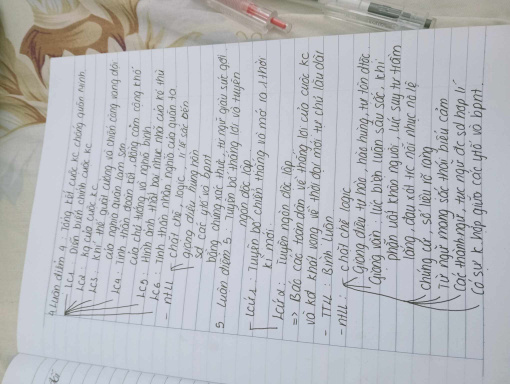 4. Luận điểm 4: Tổng kết cuộc kc chống quân minh.
Lc1: Diễn biến chính cuộc kc
Lc2: Kq của cuộc kc
Lc3: Khí thế quật cường và chiến công vang dội
của nghĩa quân Lam Sơn.
Lc4: Tinh thần đoàn kết, đồng cam cộng khổ
của chủ tướng và nghĩa binh.
Lc5: Hình ảnh thất bại nhục nhã của kẻ thù
Lc6: Tinh thần nhân nghĩa của quân ta
- NTLL: chặt chẽ, logic, lí lẽ sắc bén
giọng điệu hùng hồn
sd các ytố và bpnt
bằng chứng xác thực, từ ngữ giàu sức gợi
5. Luận điểm 5: Tuyên bố thắng lợi và tuyên
ngôn độc lập.
Lc1: Tuyên bố chiến thắng và mở ra 1 thời
kì mới.
Lc2: Tuyên ngôn độc lập
=> Báo cáo toàn dân về thắng lợi của cuộc kc
và kđ khát vọng về thời đại mới tự chủ lâu dài
- TTLL: Bình Luận
- NTLL: chặt chẽ logic
Giọng điệu tự hào, hào hùng, tự tôn dtộc.
Giọng văn: lúc bình luận sâu sắc, khi
phẫn uất khôn nguôi, lúc suy tư trầm
lắng, đau xót trc nỗi nhục nô lệ
chứng cứ, số liệu rõ ràng
Từ ngữ mang sắc thái biểu cảm
Các thành ngữ, tục ngữ đc sd hợp lí
Có sự k hợp giữa các ytố và bpnt.